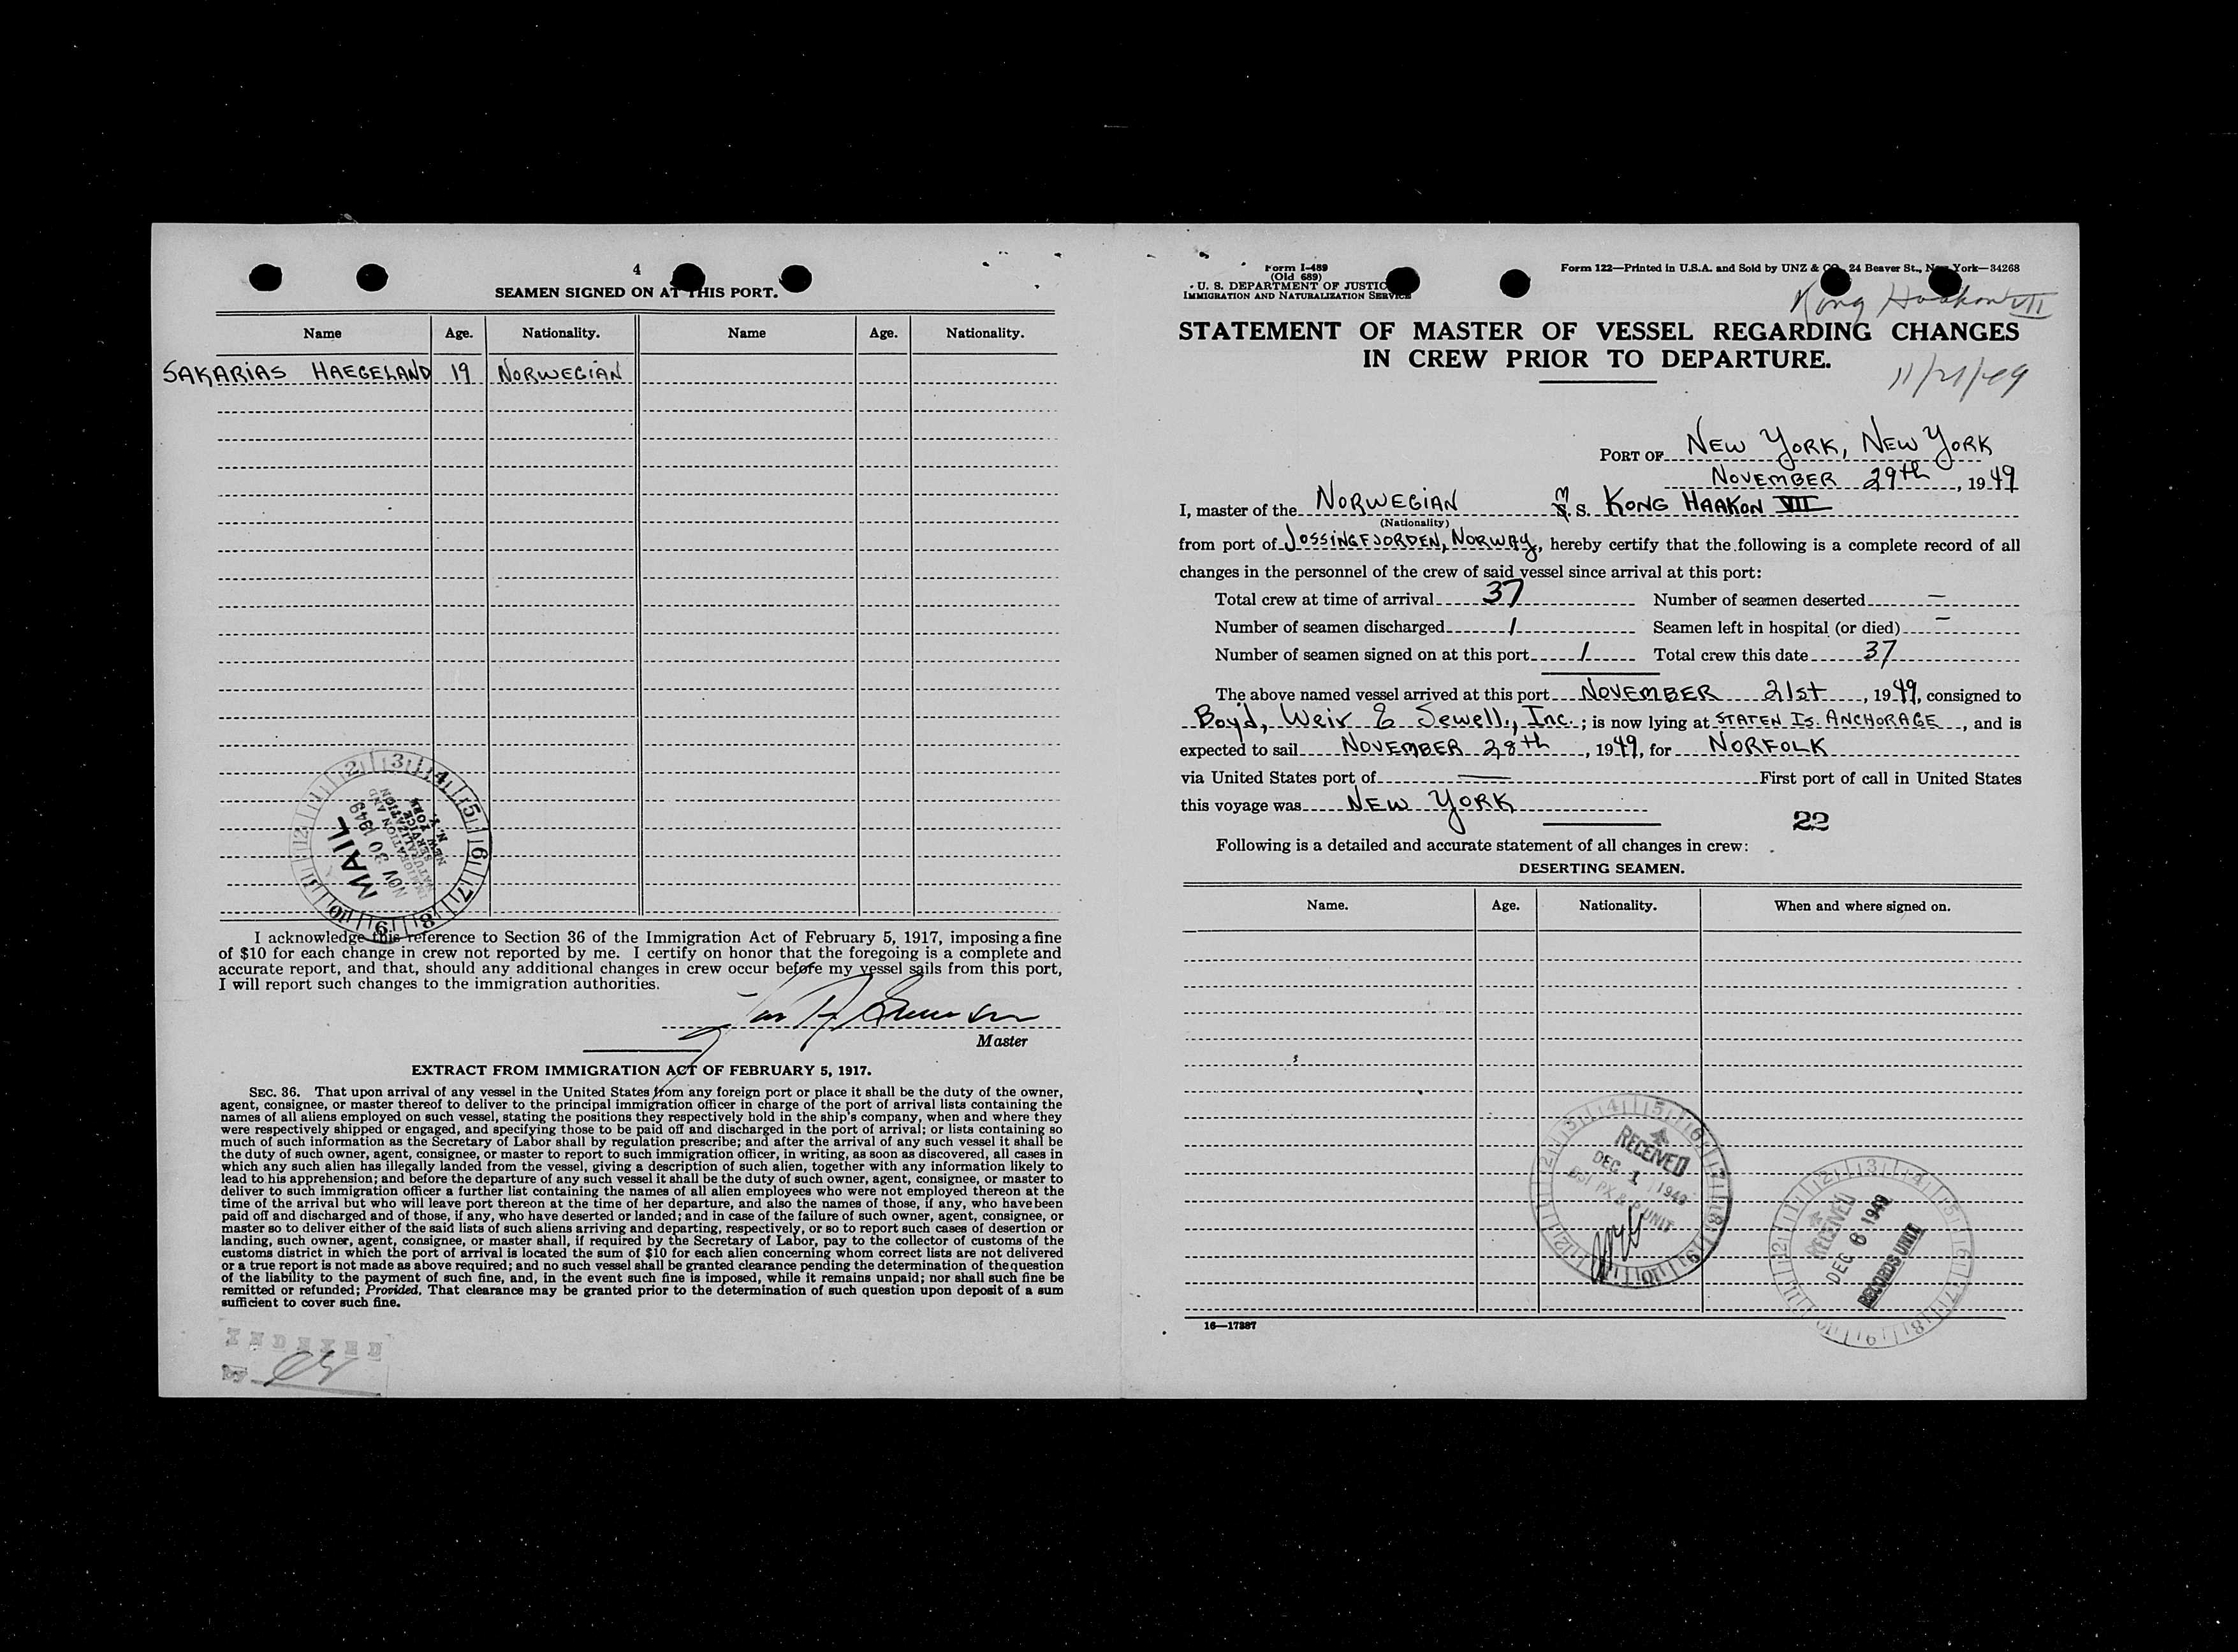 4
SEAMEN SIGNED ON AT THIS PORT.
Name Age. Nationality. Name Age. Nationality.
SAKARIAS HAEGELAND 19 NORWEGIAN
MAIL
NOV 30 1949
IMMIGRATION AND
NATURALIZATION
SERVICE
NEW YORK
N. Y.
I acknowledge this reference to Section 36 of the Immigration Act of February 5, 1917, imposing a fine
of $10 for each change in crew not reported by me. I certify on honor that the foregoing is a complete and
accurate report, and that, should any additional changes in crew occur before my vessel sails from this port,
I will report such changes to the immigration authorities.
Master
EXTRACT FROM IMMIGRATION ACT OF FEBRUARY 5, 1917.
SEC. 36. That upon arrival of any vessel in the United States from any foreign port or place it shall be the duty of the owner,
agent, consignee, or master thereof to deliver to the principal immigration officer in charge of the port of arrival lists containing the
names of all aliens employed on such vessel, stating the positions they respectively hold in the ship's company, when and where they
were respectively shipped or engaged, and specifying those to be paid off and discharged in the port of arrival; or lists containing so
much of such information as the Secretary of Labor shall by regulation prescribe; and after the arrival of any such vessel it shall be
the duty of such owner, agent, consignee, or master to report to such immigration officer, in writing, as soon as discovered, all cases in
which any such alien has illegally landed from the vessel, giving a description of such alien, together with any information likely to
lead to his apprehension; and before the departure of any such vessel it shall be the duty of such owner, agent, consignee, or master to
deliver to such immigration officer a further list containing the names of all alien employees who were not employed thereon at the
time of the arrival but who will leave port thereon at the time of her departure, and also the names of those, if any, who have been
paid off and discharged and of those, if any, who have deserted or landed; and in case of the failure of such owner, agent, consignee, or
master so to deliver either of the said lists of such aliens arriving and departing, respectively, or so to report such cases of desertion or
landing, such owner, agent, consignee, or master shall, if required by the Secretary of Labor, pay to the collector of customs of the
customs district in which the port of arrival is located the sum of $10 for each alien concerning whom correct lists are not delivered
or a true report is not made as above required; and no such vessel shall be granted clearance pending the determination of the question
of the liability to the payment of such fine, and, in the event such fine is imposed, while it remains unpaid; nor shall such fine be
remitted or refunded; Provided, That clearance may be granted prior to the determination of such question upon deposit of a sum
sufficient to cover such fine.
INDEXED
by
Form I-489
(Old 689)
U. S. DEPARTMENT OF JUSTICE
IMMIGRATION AND NATURALIZATION SERVICE
Form 122—Printed in U.S.A. and Sold by UNZ & CO. 24 Beaver St., New York—34268
Kong Haakon VII
STATEMENT OF MASTER OF VESSEL REGARDING CHANGES
IN CREW PRIOR TO DEPARTURE.
11/21/49
PORT OF NEW YORK, NEW YORK
NOVEMBER 29th, 1949
I, master of the NORWEGIAN M. S. KONG HAAKON VII
(Nationality)
from port of JOSSINGFJORDEN, NORWAY, hereby certify that the following is a complete record of all
changes in the personnel of the crew of said vessel since arrival at this port:
Total crew at time of arrival 37 Number of seamen deserted —
Number of seamen discharged 1 Seamen left in hospital (or died) —
Number of seamen signed on at this port 1 Total crew this date 37
The above named vessel arrived at this port NOVEMBER 21st, 1949, consigned to
Boyd, Weir & Sewell, Inc.; is now lying at STATEN IS. ANCHORAGE, and is
expected to sail NOVEMBER 28th, 1949, for NORFOLK
via United States port of — First port of call in United States
this voyage was NEW YORK
22
Following is a detailed and accurate statement of all changes in crew:
DESERTING SEAMEN.
Name. Age. Nationality. When and where signed on.
RECEIVED
DEC 1 1949
UNIT
RECEIVED
DEC 6 1949
RECORDS UNIT
16—17387